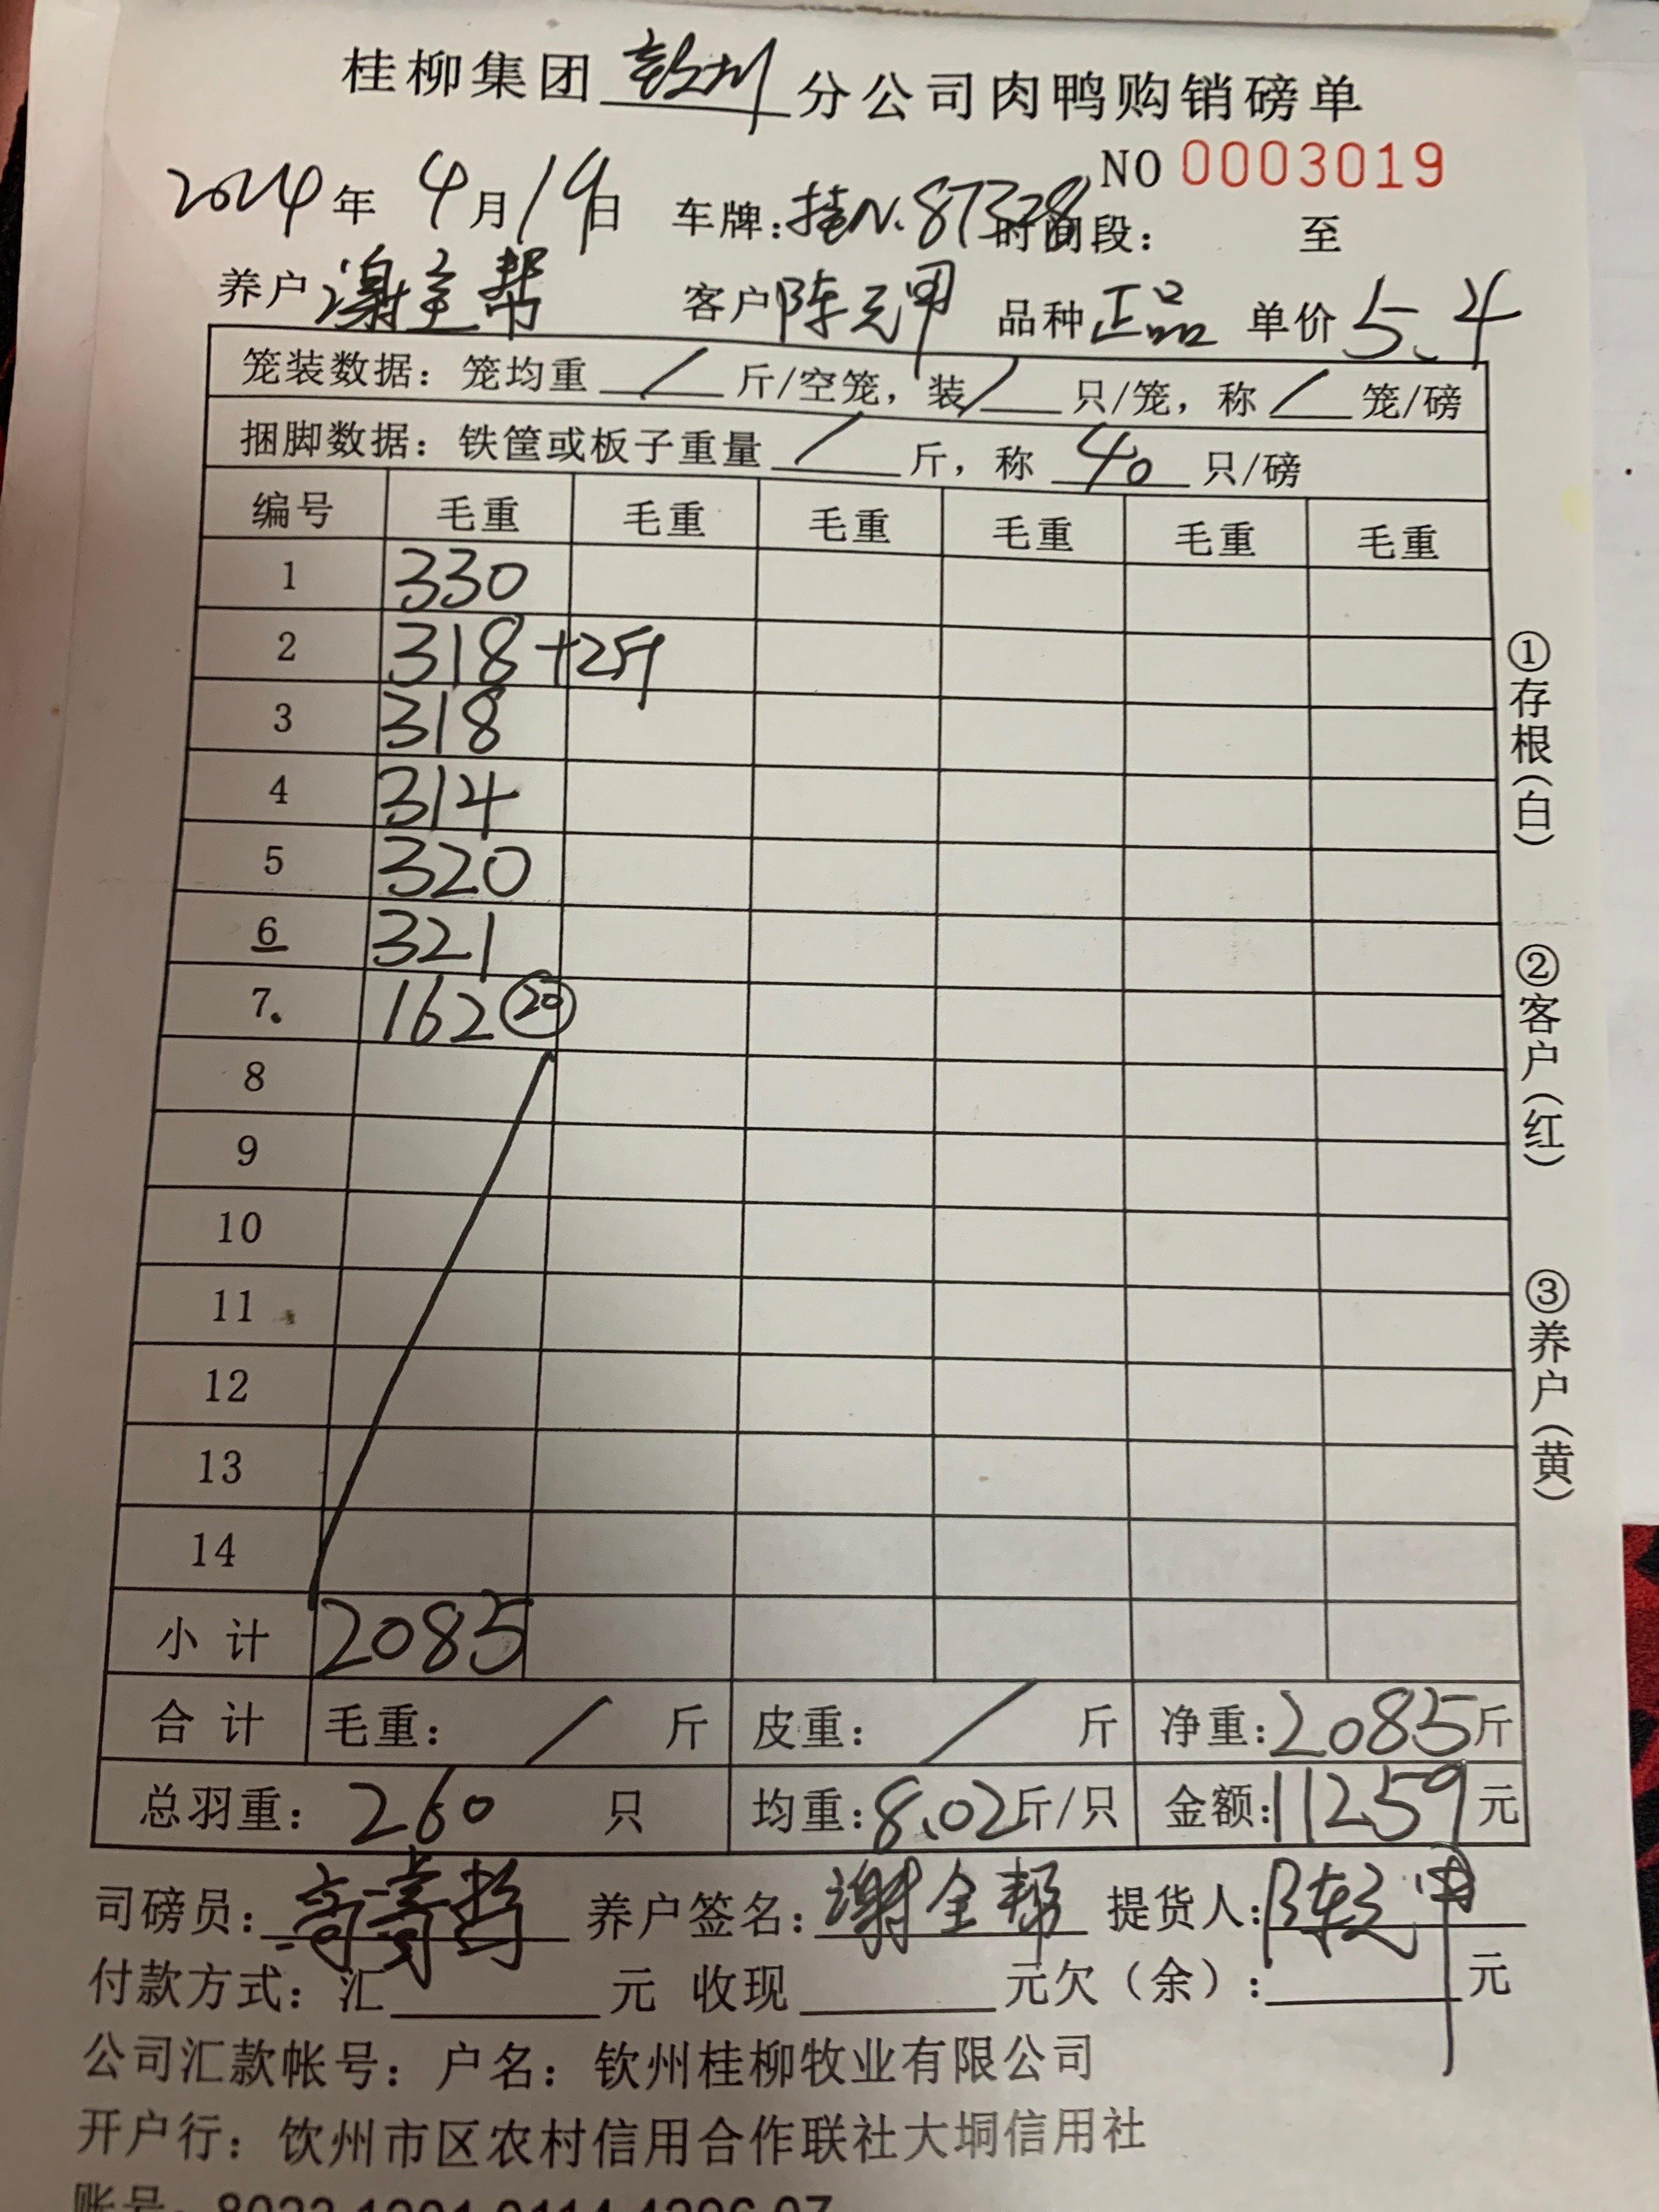 桂柳集团 钦州 分公司肉鸭购销磅单
NO 0003019
2024年 4月19日 车牌:桂N.87328 时间段: 至
养户 谢全帮 客户 陈元甲 品种 正品 单价 5.4
笼装数据:笼均重 / 斤/空笼,装 / 只/笼,称 / 笼/磅
捆脚数据:铁筐或板子重量 / 斤,称 40 只/磅
编号 毛重 毛重 毛重 毛重 毛重 毛重
1 330
2 318+2斤
3 318
4 314
5 320
6 321
7. 162 ⑳
8
9
10
11
12
13
14
小计 2085
合计 毛重: / 斤 皮重: / 斤 净重:2085斤
总羽重: 260 只 均重:8.02斤/只 金额:11259元
①存根(白)
②客户(红)
③养户(黄)
司磅员: 养户签名:谢全帮 提货人:陈元甲
付款方式:汇 元 收现 元欠(余): 元
公司汇款帐号:户名:钦州桂柳牧业有限公司
开户行:饮州市区农村信用合作联社大垌信用社
账号: